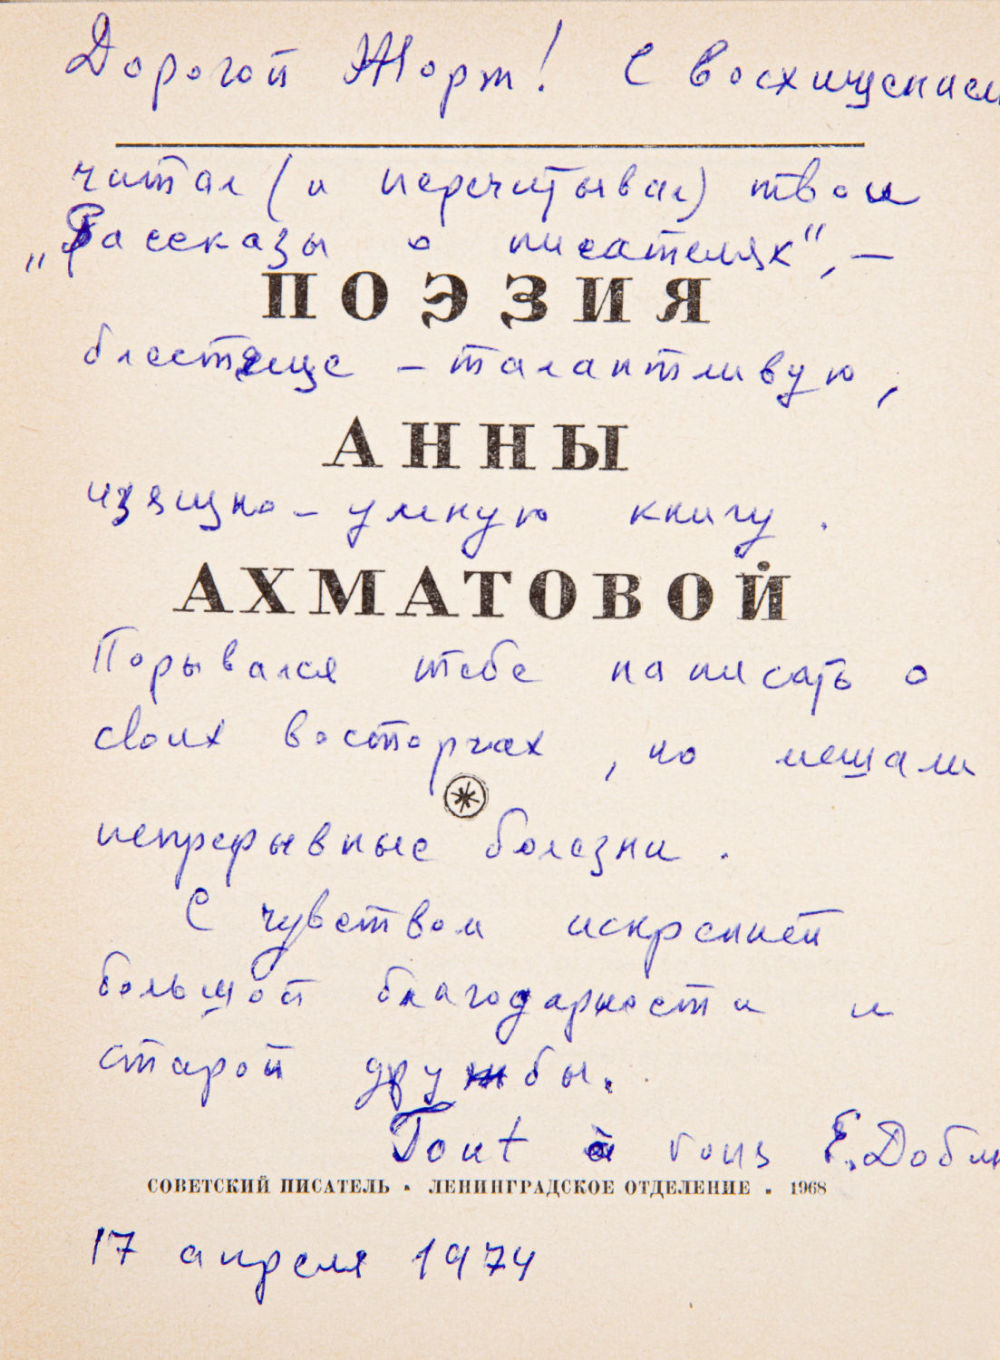 Дорогой Жорж! С восхищением
читал (и перечитывал) твои
„Рассказы о писателях", –
ПОЭЗИЯ
блестяще – талантливую,
АННЫ
изящно – умную книгу.
АХМАТОВОЙ
Порывался тебе написать о
своих восторгах, но мешали
непрерывные болезни.
С чувством искренней
большой благодарности и
старой дружбы.
Tout à vous Е. Доби
СОВЕТСКИЙ ПИСАТЕЛЬ • ЛЕНИНГРАДСКОЕ ОТДЕЛЕНИЕ • 1968
17 апреля 1974